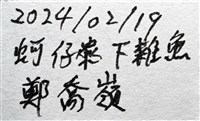 2024/02/19
蚵仔煎下雜魚
鄭喬嶺